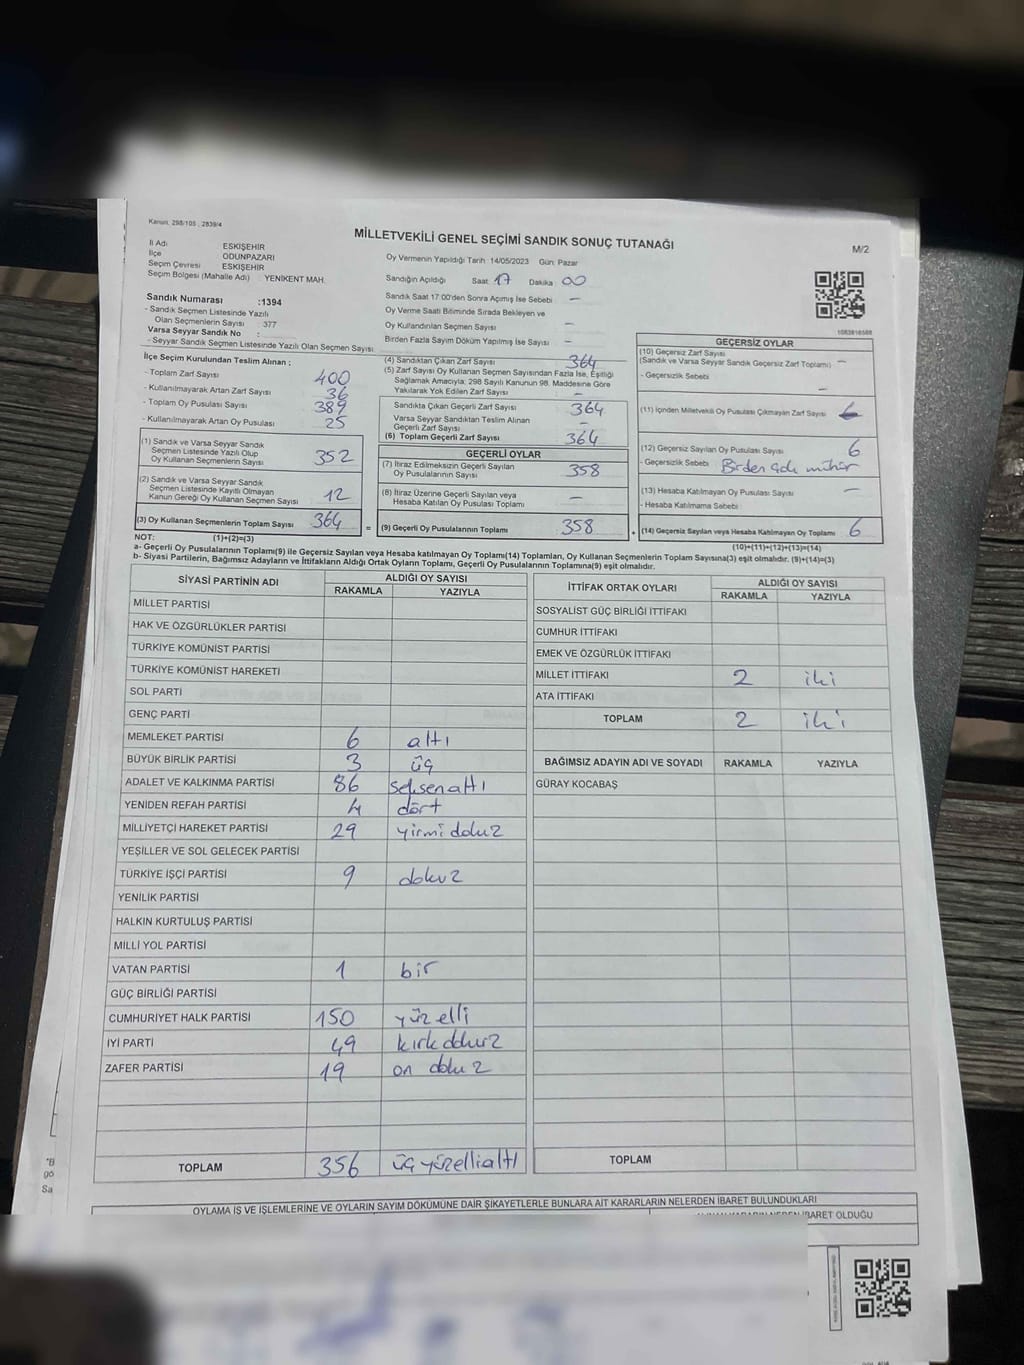 Kanun: 298/105 , 2839/4
MİLLETVEKİLİ GENEL SEÇİMİ SANDIK SONUÇ TUTANAĞI
M/2
İl Adı ESKİŞEHİR
İlçe ODUNPAZARI
Seçim Çevresi ESKİŞEHİR
Seçim Bölgesi (Mahalle Adı) YENİKENT MAH.
Oy Vermenin Yapıldığı Tarih: 14/05/2023 Gün: Pazar
Sandığın Açıldığı Saat 17 Dakika 00
Sandık Saat 17:00'den Sonra Açımış İse Sebebi –
Oy Verme Saati Bitiminde Sırada Bekleyen ve
Oy Kullandırılan Seçmen Sayısı –
Birden Fazla Sayım Döküm Yapılmış İse Sayısı –
Sandık Numarası :1394
- Sandık Seçmen Listesinde Yazılı
Olan Seçmenlerin Sayısı 377
Varsa Seyyar Sandık No :
- Seyyar Sandık Seçmen Listesinde Yazılı Olan Seçmen Sayısı
İlçe Seçim Kurulundan Teslim Alınan ;
- Toplam Zarf Sayısı 400
- Kullanılmayarak Artan Zarf Sayısı 36
- Toplam Oy Pusulası Sayısı 389
- Kullanılmayarak Artan Oy Pusulası 25
(1) Sandık ve Varsa Seyyar Sandık
Seçmen Listesinde Yazılı Olup
Oy Kullanan Seçmenlerin Sayısı 352
(2) Sandık ve Varsa Seyyar Sandık
Seçmen Listesinde Kayıtlı Olmayan
Kanun Gereği Oy Kullanan Seçmen Sayısı 12
(3) Oy Kullanan Seçmenlerin Toplam Sayısı 364
(4) Sandıktan Çıkan Zarf Sayısı 364
(5) Zarf Sayısı Oy Kullanan Seçmen Sayısından Fazla İse, Eşitliği
Sağlamak Amacıyla; 298 Sayılı Kanunun 98. Maddesine Göre
Yakılarak Yok Edilen Zarf Sayısı –
Sandıkta Çıkan Geçerli Zarf Sayısı 364
Varsa Seyyar Sandıktan Teslim Alınan
Geçerli Zarf Sayısı –
(6) Toplam Geçerli Zarf Sayısı 364
GEÇERLİ OYLAR
(7) İtiraz Edilmeksizin Geçerli Sayılan
Oy Pusulalarının Sayısı 358
(8) İtiraz Üzerine Geçerli Sayılan veya
Hesaba Katılan Oy Pusulası Toplamı –
= (9) Geçerli Oy Pusulalarının Toplamı 358
GEÇERSİZ OYLAR
(10) Geçersiz Zarf Sayısı
(Sandık ve Varsa Seyyar Sandık Geçersiz Zarf Toplamı) –
- Geçersizlik Sebebi –
(11) İçinden Milletvekili Oy Pusulası Çıkmayan Zarf Sayısı
(12) Geçersiz Sayılan Oy Pusulası Sayısı 6
- Geçersizlik Sebebi Birden çok mühür
(13) Hesaba Katılmayan Oy Pusulası Sayısı –
- Hesaba Katılmama Sebebi
+ (14) Geçersiz Sayılan veya Hesaba Katılmayan Oy Toplamı 6
NOT: (1)+(2)=(3)
(10)+(11)+(12)+(13)=(14)
a- Geçerli Oy Pusulalarının Toplamı(9) ile Geçersiz Sayılan veya Hesaba katılmayan Oy Toplamı(14) Toplamları, Oy Kullanan Seçmenlerin Toplam Sayısına(3) eşit olmalıdır. (9)+(14)=(3)
b- Siyasi Partilerin, Bağımsız Adayların ve İttifakların Aldığı Ortak Oyların Toplamı, Geçerli Oy Pusulalarının Toplamına(9) eşit olmalıdır.
SİYASİ PARTİNİN ADI ALDIĞI OY SAYISI
RAKAMLA YAZIYLA
MİLLET PARTİSİ
HAK VE ÖZGÜRLÜKLER PARTİSİ
TÜRKİYE KOMÜNİST PARTİSİ
TÜRKİYE KOMÜNİST HAREKETİ
SOL PARTİ
GENÇ PARTİ
MEMLEKET PARTİSİ 6 altı
BÜYÜK BİRLİK PARTİSİ 3 üç
ADALET VE KALKINMA PARTİSİ 86 seksenaltı
YENİDEN REFAH PARTİSİ 4 dört
MİLLİYETÇİ HAREKET PARTİSİ 29 yirmi dokuz
YEŞİLLER VE SOL GELECEK PARTİSİ
TÜRKİYE İŞÇİ PARTİSİ 9 dokuz
YENİLİK PARTİSİ
HALKIN KURTULUŞ PARTİSİ
MİLLİ YOL PARTİSİ
VATAN PARTİSİ 1 bir
GÜÇ BİRLİĞİ PARTİSİ
CUMHURİYET HALK PARTİSİ 150 yüz elli
İYİ PARTİ 49 kırk dokuz
ZAFER PARTİSİ 19 on dokuz
TOPLAM 356 üç yüzellialtı
İTTİFAK ORTAK OYLARI ALDIĞI OY SAYISI
RAKAMLA YAZIYLA
SOSYALİST GÜÇ BİRLİĞİ İTTİFAKI
CUMHUR İTTİFAKI
EMEK VE ÖZGÜRLÜK İTTİFAKI
MİLLET İTTİFAKI 2 iki
ATA İTTİFAKI
TOPLAM 2 iki
BAĞIMSIZ ADAYIN ADI VE SOYADI RAKAMLA YAZIYLA
GÜRAY KOCABAŞ
TOPLAM
OYLAMA İŞ VE İŞLEMLERİNE VE OYLARIN SAYIM DÖKÜMÜNE DAİR ŞİKAYETLERLE BUNLARA AİT KARARLARIN NELERDEN İBARET BULUNDUKLARI
İBARET OLDUĞU